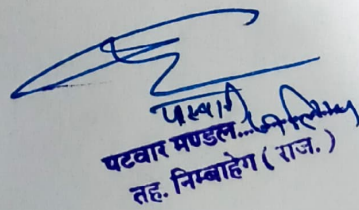 पटवारी
पटवार मण्डल...
तह. निम्बाहेडा ( राज. )